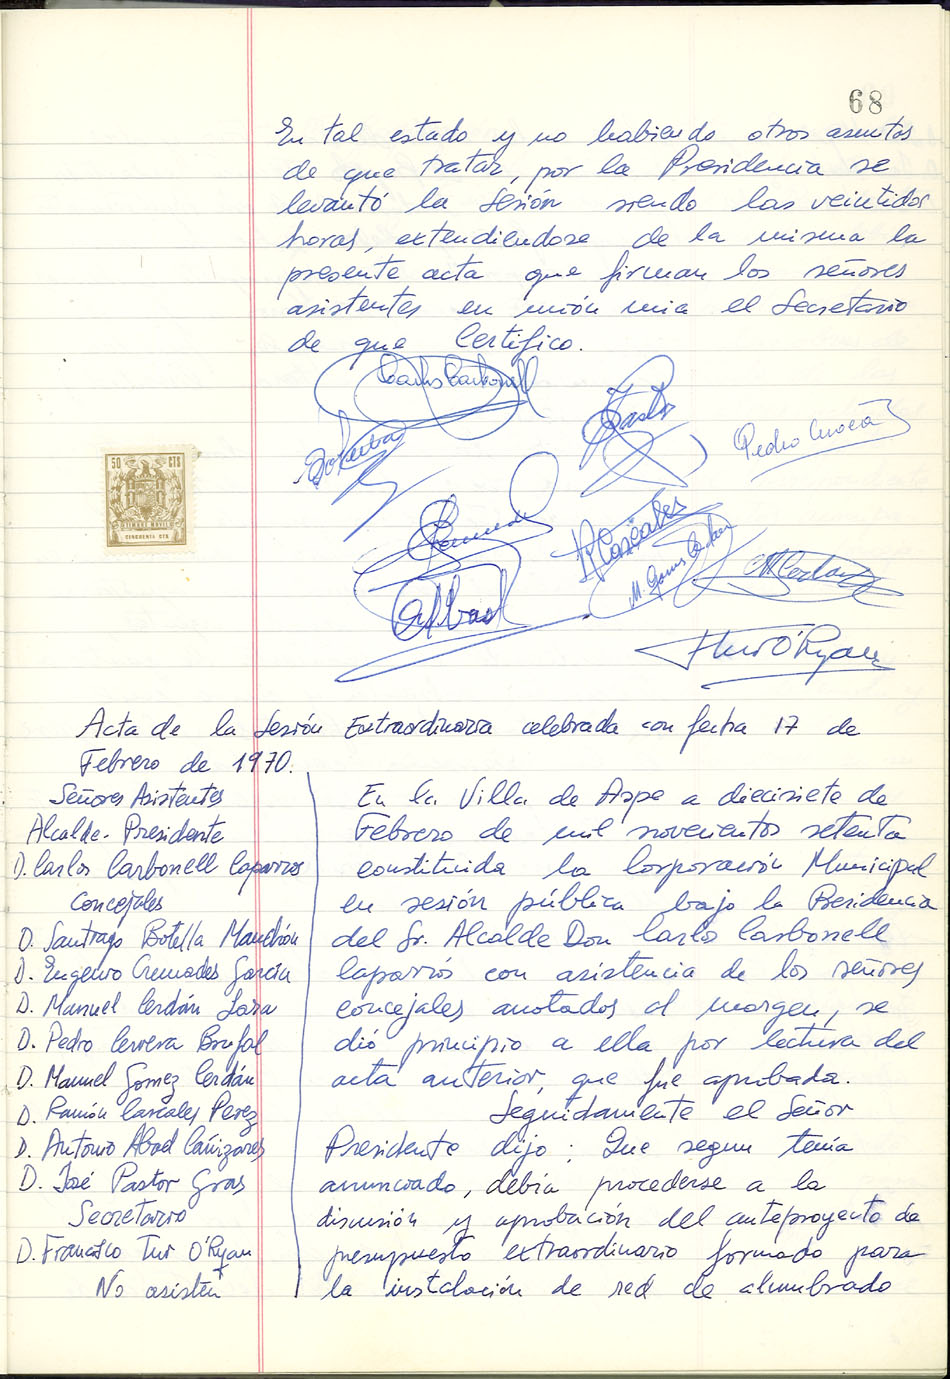 68
En tal estado y no habiendo otros asuntos
de que tratar, por la Presidencia se
levantó la sesión siendo las veintidos
horas, extendiendose de la misma la
presente acta que firman los señores
asistentes en unión mia el Secretario
de que Certifico.
Carlos Carbonell
Pastor
Pedro Cervera
R Cascales
M. Gomez Cerdan
M Cerdan
Abad
Tur O'Ryan
50 CTS
TIMBRE MOVIL
CINCUENTA CTS
Acta de la Sesión Extraordinaria celebrada con fecha 17 de
Febrero de 1970.
Señores Asistentes
Alcalde-Presidente
D. Carlos Carbonell Caparros
Concejales
D. Santiago Botella Manchón
D. Eugenio Cremades García
D. Manuel Cerdán Jara
D. Pedro Cervera Brufal
D. Manuel Gomez Cerdán
D. Ramón Cascales Perez
D. Antonio Abad Cañizares
D. José Pastor Gras
Secretario
D. Francisco Tur O'Ryan
No asisten
En la Villa de Aspe a diecisiete de
Febrero de mil novecientos setenta
constituida la Corporación Municipal
en sesión pública bajo la Presidencia
del Sr. Alcalde Don Carlos Carbonell
Caparrós con asistencia de los señores
concejales anotados al margen, se
dió principio a ella por lectura del
acta anterior, que fue aprobada.
Seguidamente el Señor
Presidente dijo: Que segun tenia
anunciado, debia procederse a la
discusión y aprobación del anteproyecto de
presupuesto extraordinario formado para
la instalación de red de alumbrado